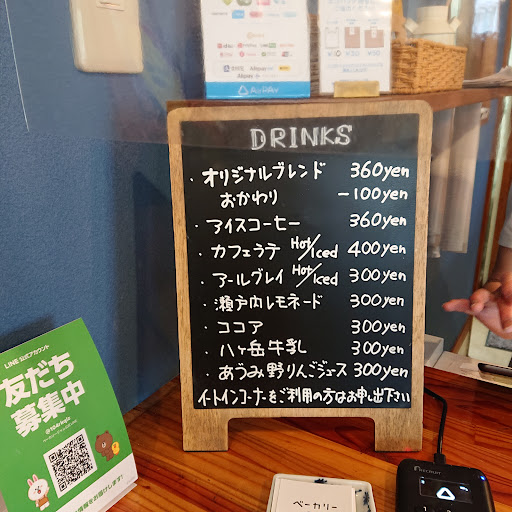 DRINKS
・オリジナルブレンド 360yen
おかわり -100yen
・アイスコーヒー 360yen
・カフェラテ Hot/Iced 400yen
・アールグレイ Hot/Iced 300yen
・瀬戸内レモネード 300yen
・ココア 300yen
・八ヶ岳牛乳 300yen
・あづみ野りんごジュース 300yen
イートインコーナーをご利用の方はお申し出下さい
LINE 公式アカウント
友だち
募集中
ベーカリー